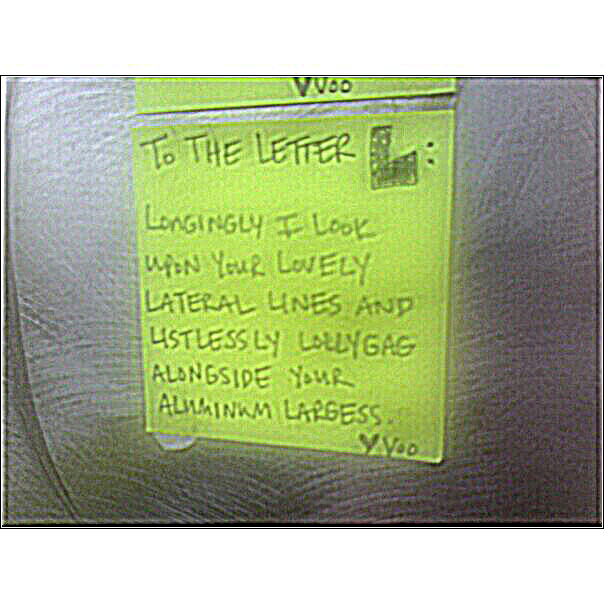 ♥ VOO
TO THE LETTER L:
LONGINGLY I LOOK
UPON YOUR LOVELY
LATERAL LINES AND
LISTLESSLY LOLLYGAG
ALONGSIDE YOUR
ALUMINUM LARGESS.
♥ VOO